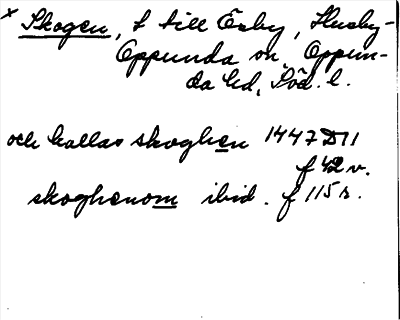 x Skogen, t till Ésby, Husby-
Oppunda sn, Oppun-
da hd, Söd. l.
och kallas skoghen 1447 D11
f 42 v.
skoghenom ibid. f 115 r.